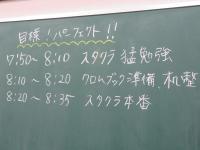 目標！パーフェクト！！
7:50〜8:10 スタクラ 猛勉強
8:10〜8:20 クロムブック準備、机整
8:20〜8:35 スタクラ本番